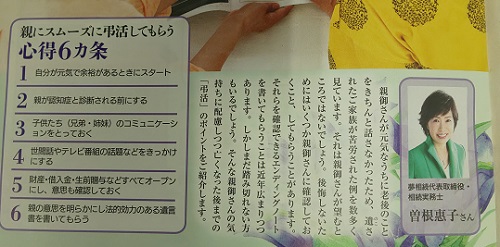 親にスムーズに弔活してもらう
心得6カ条
1 自分が元気で余裕があるときにスタート
2 親が認知症と診断される前にする
3 子供たち（兄弟・姉妹）のコミュニケーションをとっておく
4 世間話やテレビ番組の話題などをきっかけにする
5 財産・借入金・生前贈与などすべてオープンにし、意思も確認しておく
6 親の意思を明らかにし法的効力のある遺言書を書いてもらう
親御さんが元気なうちに老後のこと
をきちんと話さなかったため、遺さ
れたご家族が苦労された例を数多く
見ています。それは親御さんが望むと
ころではないでしょう。後悔しないた
めにはいくつか親御さんに確認してお
くこと、してもらうことがあります。
それらを確認できるエンディングノート
を書いてもらうことは近年広まりつつ
あります。しかしまだ踏み切れない方
もいるでしょう。そんな親御さんの気
持ちに配慮しつつ亡くなった後までの
「弔活」のポイントをご紹介します。
夢相続代表取締役・
相続実務士
曽根惠子さん